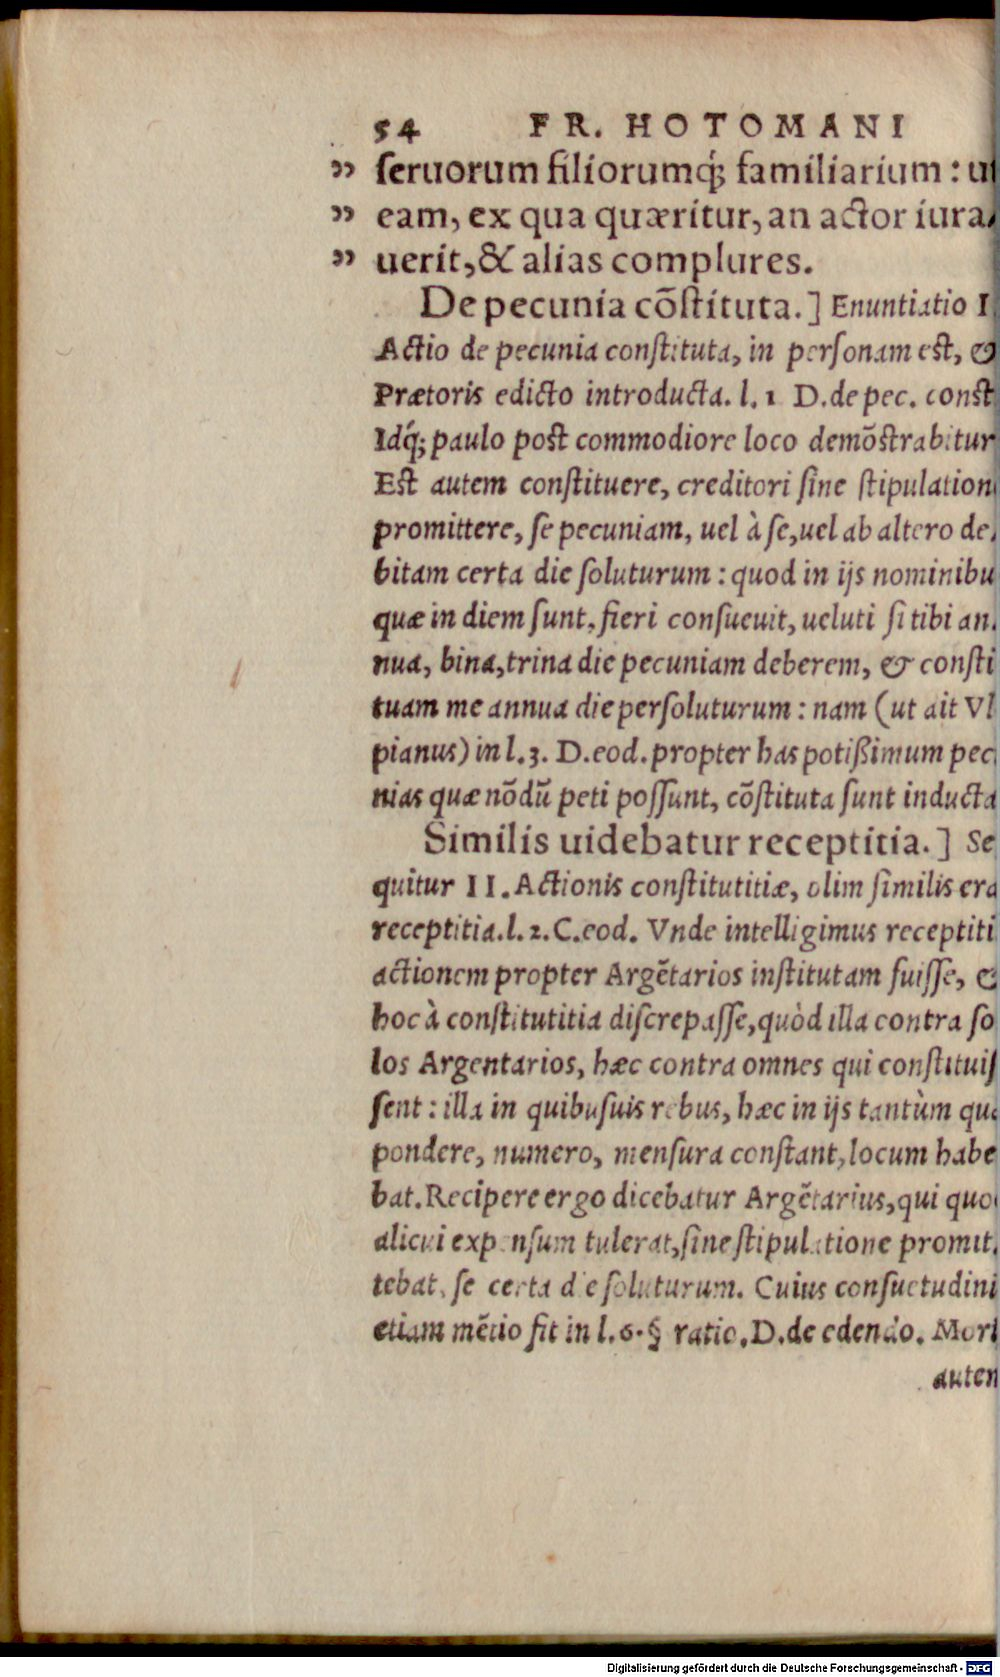 54 FR. HOTOMANI
„ seruorum filiorumq́; familiarium: ut
„ eam, ex qua quæritur, an actor iura-
„ uerit, & alias complures.
De pecunia cõstituta.] Enuntiatio I.
Actio de pecunia constituta, in personam est, &
Prætoris edicto introducta. l. 1 D. de pec. const
Idq́; paulo post commodiore loco demõstrabitur
Est autem constituere, creditori sine stipulation
promittere, se pecuniam, uel à se, uel ab altero de-
bitam certa die soluturum: quod in ijs nominibu
quæ in diem sunt, fieri consueuit, ueluti si tibi an-
nua, bina, trina die pecuniam deberem, & consti
tuam me annua die persoluturum: nam (ut ait Vl
pianus) in l. 3. D. eod. propter has potißimum pec
nias quæ nõdũ peti possunt, cõstituta sunt inducta
Similis uidebatur receptitia.] Se
quitur II. Actionis constitutitiæ, olim similis era
receptitia. l. 2. C. eod. Vnde intelligimus receptiti
actionem propter Argẽtarios institutam fuisse, &
hoc à constitutitia discrepasse, quòd illa contra so
los Argentarios, hæc contra omnes qui constituis
sent: illa in quibusuis rebus, hæc in ijs tantùm quæ
pondere, numero, mensura constant, locum habe
bat. Recipere ergo dicebatur Argẽtarius, qui quod
alicui expensum tulerat, sine stipulatione promit-
tebat, se certa die soluturum. Cuius consuetudini
etiam mẽtio fit in l. 6. § ratio. D. de edendo. Mori
autem
Digitalisierung gefördert durch die Deutsche Forschungsgemeinschaft - DFG